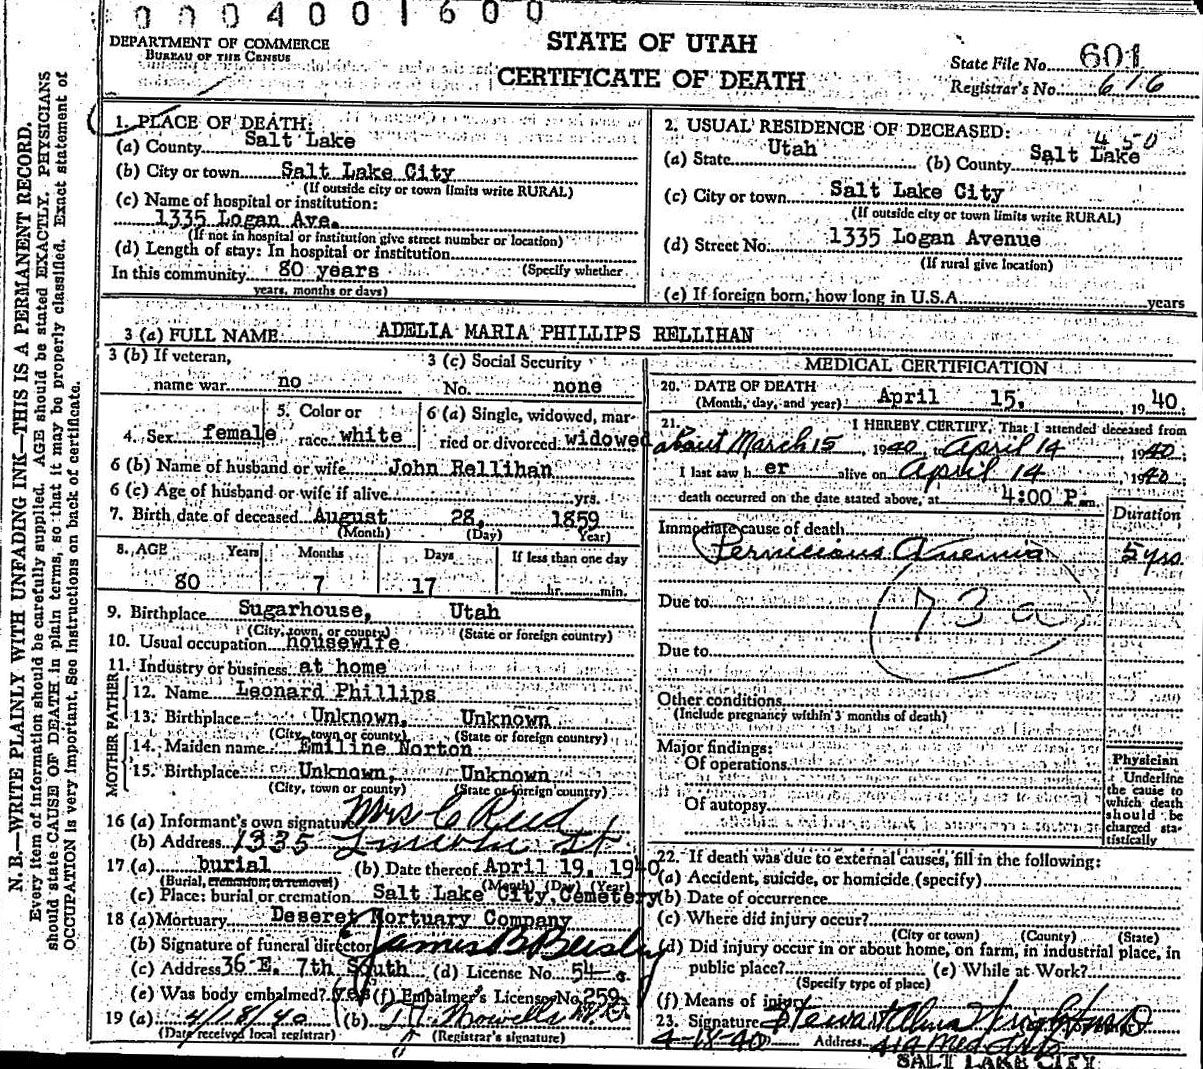 0004001600
DEPARTMENT OF COMMERCE
BUREAU OF THE CENSUS
STATE OF UTAH
CERTIFICATE OF DEATH
State File No. 601
Registrar's No. 616
N. B.—WRITE PLAINLY WITH UNFADING INK—THIS IS A PERMANENT RECORD.
Every item of information should be carefully supplied. AGE should be stated EXACTLY. PHYSICIANS
should state CAUSE OF DEATH in plain terms, so that it may be properly classified. Exact statement of
OCCUPATION is very important. See instructions on back of certificate.
1. PLACE OF DEATH:
(a) County Salt Lake
(b) City or town Salt Lake City
(If outside city or town limits write RURAL)
(c) Name of hospital or institution:
1335 Logan Ave.
(If not in hospital or institution give street number or location)
(d) Length of stay: In hospital or institution
In this community 80 years (Specify whether
years, months or days)
2. USUAL RESIDENCE OF DECEASED: 450
(a) State Utah (b) County Salt Lake
(c) City or town Salt Lake City
(If outside city or town limits write RURAL)
(d) Street No. 1335 Logan Avenue
(If rural give location)
(e) If foreign born, how long in U.S.A. years
3 (a) FULL NAME ADELIA MARIA PHILLIPS RELLIHAN
3 (b) If veteran, 3 (c) Social Security
name war no No. none
4. Sex female 5. Color or race white 6 (a) Single, widowed, married or divorced widowed
6 (b) Name of husband or wife John Rellihan
6 (c) Age of husband or wife if alive yrs.
7. Birth date of deceased August 28, 1859
(Month) (Day) Year)
8. AGE Years Months Days If less than one day
80 7 17 hr. min.
9. Birthplace Sugarhouse, Utah
(City, town, or county) (State or foreign country)
10. Usual occupation housewife
11. Industry or business at home
FATHER
12. Name Leonard Phillips
13. Birthplace Unknown, Unknown
(City, town or county) (State or foreign country)
MOTHER
14. Maiden name Emiline Norton
15. Birthplace Unknown, Unknown
(City, town or county) (State or foreign country)
16 (a) Informant's own signature Mrs C Reed
(b) Address 1335 Lincoln St
17 (a) burial (b) Date thereof April 19, 1940
(Burial, cremation, or removal) (Month) (Day) (Year)
(c) Place: burial or cremation Salt Lake City, Cemetery
18 (a) Mortuary Deseret Mortuary Company
(b) Signature of funeral director James B Beesley
(c) Address 36 E. 7th South (d) License No. 54
(e) Was body embalmed? yes (f) Embalmer's License No. 259
19 (a) 4/18/40 (b) M.D.
(Date received local registrar) (Registrar's signature)
MEDICAL CERTIFICATION
20. DATE OF DEATH
(Month, day, and year) April 15, 1940
21. I HEREBY CERTIFY, That I attended deceased from
about March 15, 1940 to April 14, 1940
I last saw her alive on April 14 1940
death occurred on the date stated above, at 4:00 P.m.
Duration
Immediate cause of death
Pernicious Anemia 5 yrs
Due to
73a
Due to
Other conditions
(Include pregnancy within 3 months of death)
Major findings:
Of operations
Of autopsy
Physician
Underline
the cause to
which death
should be
charged sta-
tistically
22. If death was due to external causes, fill in the following:
(a) Accident, suicide, or homicide (specify)
(b) Date of occurrence
(c) Where did injury occur?
(City or town) (County) (State)
(d) Did injury occur in or about home, on farm, in industrial place, in
public place? (e) While at Work?
(Specify type of place)
(f) Means of injury
23. Signature Stewart Alma Wright M.D
4-18-40 Address
SALT LAKE CITY